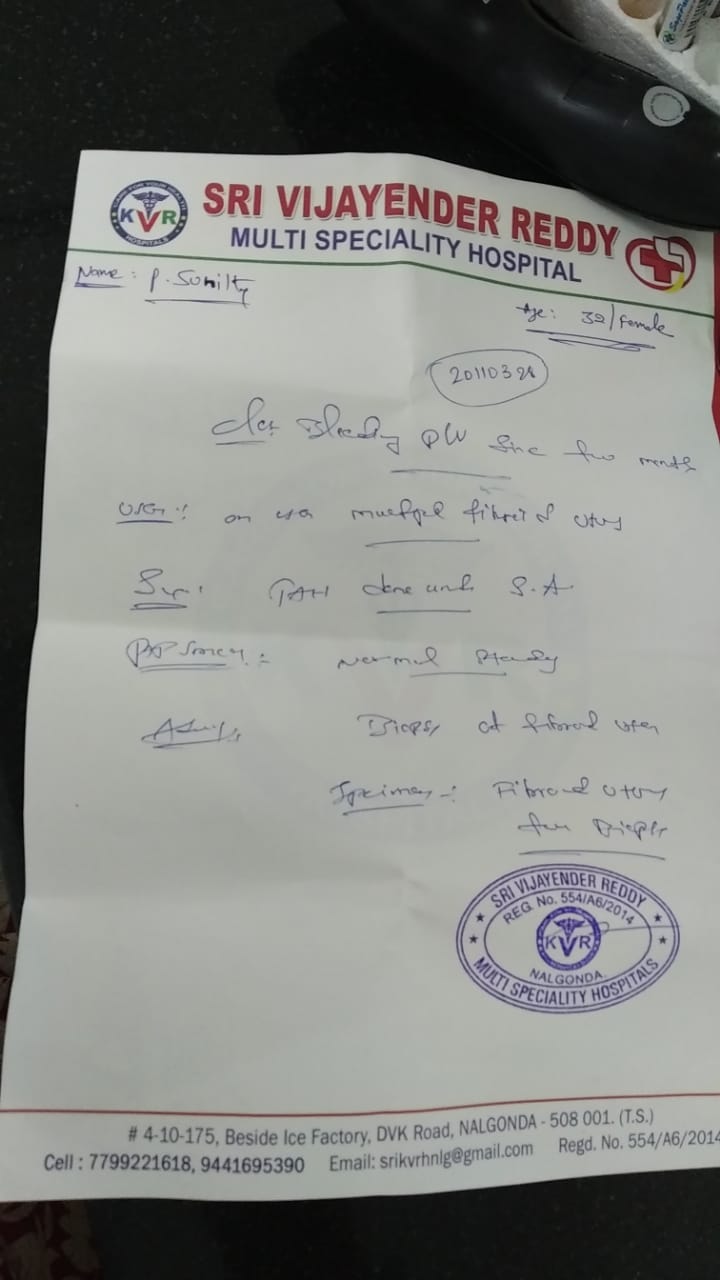 CARE FOR YOUR HEALTH
KVR
HOSPITALS
SRI VIJAYENDER REDDY
MULTI SPECIALITY HOSPITAL
Name : P. Sunil
Age : 32/Female
Bleeding P/V since few months
USG : on usg fibroid uterus
TAH done under S.A
PAP Smear :- Normal Study
Biopsy of fibroid
Specimen :- Fibroid uterus
for Biopsy
SRI VIJAYENDER REDDY
REG. No. 554/A6/2014
KVR
NALGONDA.
MULTI SPECIALITY HOSPITALS
# 4-10-175, Beside Ice Factory, DVK Road, NALGONDA - 508 001. (T.S.)
Cell : 7799221618, 9441695390 Email: srikvrhnlg@gmail.com Regd. No. 554/A6/2014